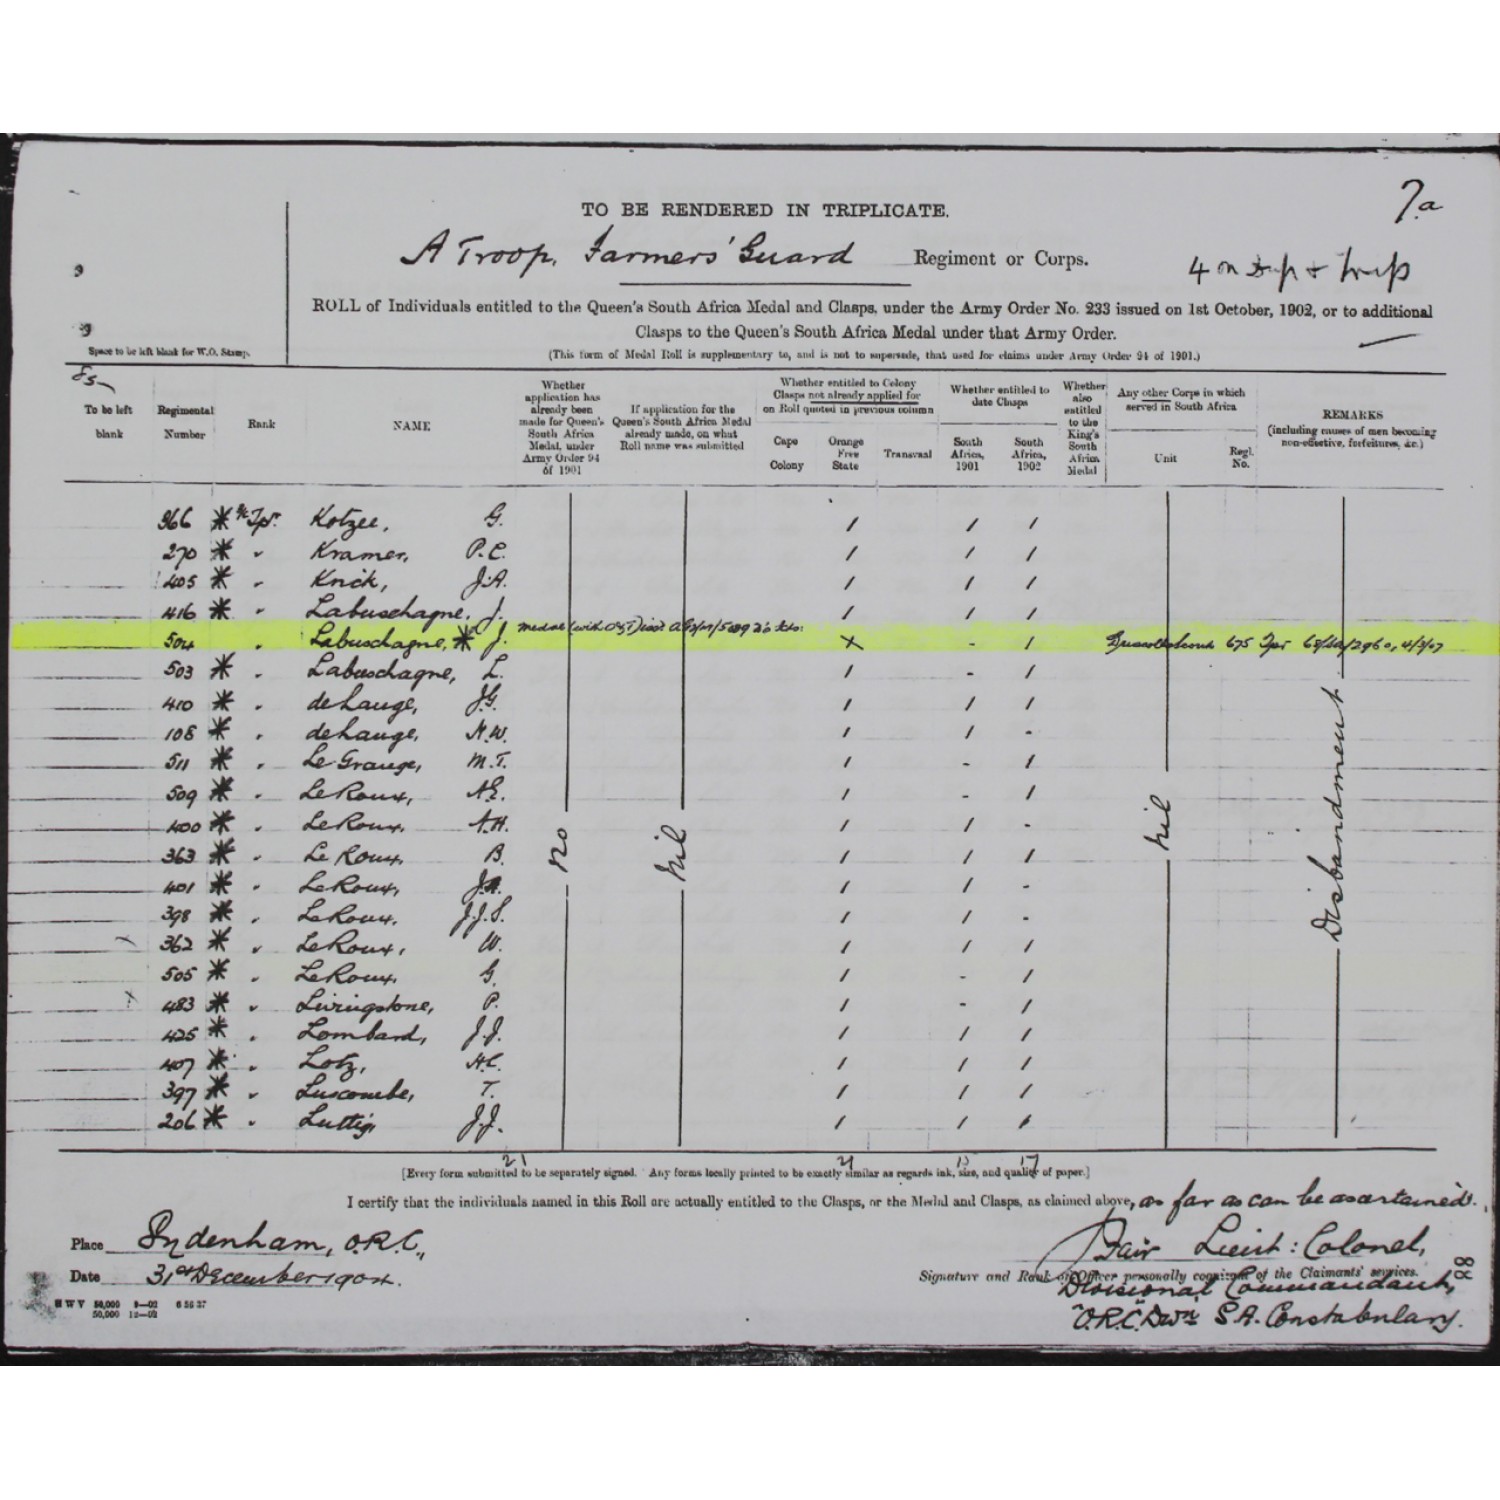 7.a
TO BE RENDERED IN TRIPLICATE.
A Troop, Farmers' Guard Regiment or Corps.
4 on
ROLL of Individuals entitled to the Queen's South Africa Medal and Clasps, under the Army Order No. 233 issued on 1st October, 1902, or to additional
Clasps to the Queen's South Africa Medal under that Army Order.
(This form of Medal Roll is supplementary to, and is not to supersede, that used for claims under Army Order 94 of 1901.)
Space to be left blank for W.O. Stamp.
To be left blank
Regimental Number
Rank
NAME
Whether application has already been made for Queen's South Africa Medal, under Army Order 94 of 1901
If application for the Queen's South Africa Medal already made, on what Roll name was submitted
Whether entitled to Colony Clasps not already applied for on Roll quoted in previous column
Cape Colony
Orange Free State
Transvaal
Whether entitled to date Clasps
South Africa, 1901
South Africa, 1902
Whether also entitled to the King's South Africa Medal
Any other Corps in which served in South Africa
Unit
Regl. No.
REMARKS
(including causes of men becoming non-effective, forfeitures, &c.)
366 * Tpr Kotzee, G. / / /
270 * " Kramer, P.C. / / /
405 * " Krick, J.A. / / /
416 * " Labuschagne, J. / / /
504 " Labuschagne, * J. medal (with x - / 675 Tpr 68/SA/2960, 4/3/07
503 * " Labuschagne, L. / - /
410 * " deLange, J.G. / / /
108 * " deLange, N.W. / / -
511 * " Le Grange, M.T. / - /
509 * " LeRoux, A.E. / - /
400 * " LeRoux, A.H. / / -
363 * " Le Roux, B. / / /
401 * " LeRoux, / / -
398 * " LeRoux, J.J.S. / / -
362 * " LeRoux, W. / / /
505 * " LeRoux, G. / - /
483 * " Livingstone, P. / - /
425 * " Lombard, J.J. / / /
407 * " Lotz, H.C. / / /
397 * " Luscombe, T. / / /
206 * " Luttig, J.J. / / /
No
Nil
Nil
Disbandment
21 21 15 17
[Every form submitted to be separately signed. Any forms locally printed to be exactly similar as regards ink, size, and quality of paper.]
I certify that the individuals named in this Roll are actually entitled to the Clasps, or the Medal and Clasps, as claimed above, as far as can be ascertained.
Place Sydenham, O.R.C.,
Date 31st December 1904.
Fair Lieut: Colonel,
Signature and Rank of Officer personally cognizant of the Claimants' services.
Divisional Commandant,
"O.R.C." Dwn S.A. Constabulary.
88
H W V 50,000 9—02 6 56 37
50,000 12—02